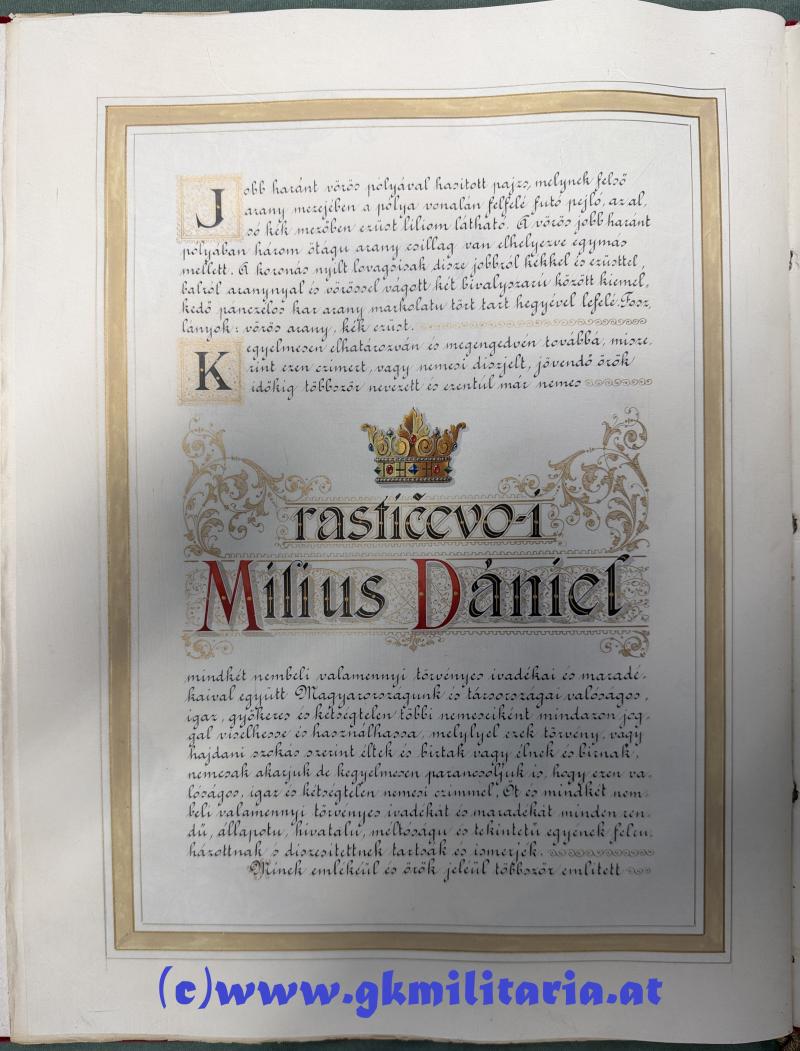 Jobb haránt vörös pólyával hasitott pajzs, melynek felső
arany mezejében a pólya vonalán felfelé futó pejló, az al,
só kék mezőben ezüst liliom látható. A vörös jobb haránt
pólyában három ötágu arany csillag van elhelyezve egymás
mellett. A koronás nyilt lovagsisak disze jobbról kékkel és ezüsttel,
balról aranynyal és vörössel vágott két bivalyszarü között kiemel,
kedő pánczélos kar arany markolatu tört tart hegyével lefelé. Fosz,
lányok: vörös arany, kék ezüst.
Kegyelmesen elhatározván és megengedvén továbbá, misze,
rint ezen czimert, vagy nemesi diszjelt, jövendő örök
időkig többször nevezett és ezentúl már nemes
rastičevo-i
Milius Dániel
mindkét nembeli valamennyi törvényes ivadékai és maradé,
kaival együtt Magyarországunk és társországai valóságos,
igaz, gyökeres és kétségtelen többi nemeseiként mindazon jog,
gal viselhesse és használhassa, melylyel ezek törvény, vagy
hajdani szokás szerint éltek és birtak vagy élnek és birnak,
nemcsak akarjuk de kegyelmesen parancsoljuk is, hogy ezen va,
lóságos, igaz és kétségtelen nemesi czimmel, Öt és mindkét nem,
beli valamennyi törvényes ivadékát és maradékát minden ren,
dü, állapotu, hivatalu, méltóságu és tekintetü egyének felru,
házottnak s diszesitettnek tartsák és ismerjék.
Minek emlékéül és örök jeléül többször emlitett
(c)www.gkmilitaria.at